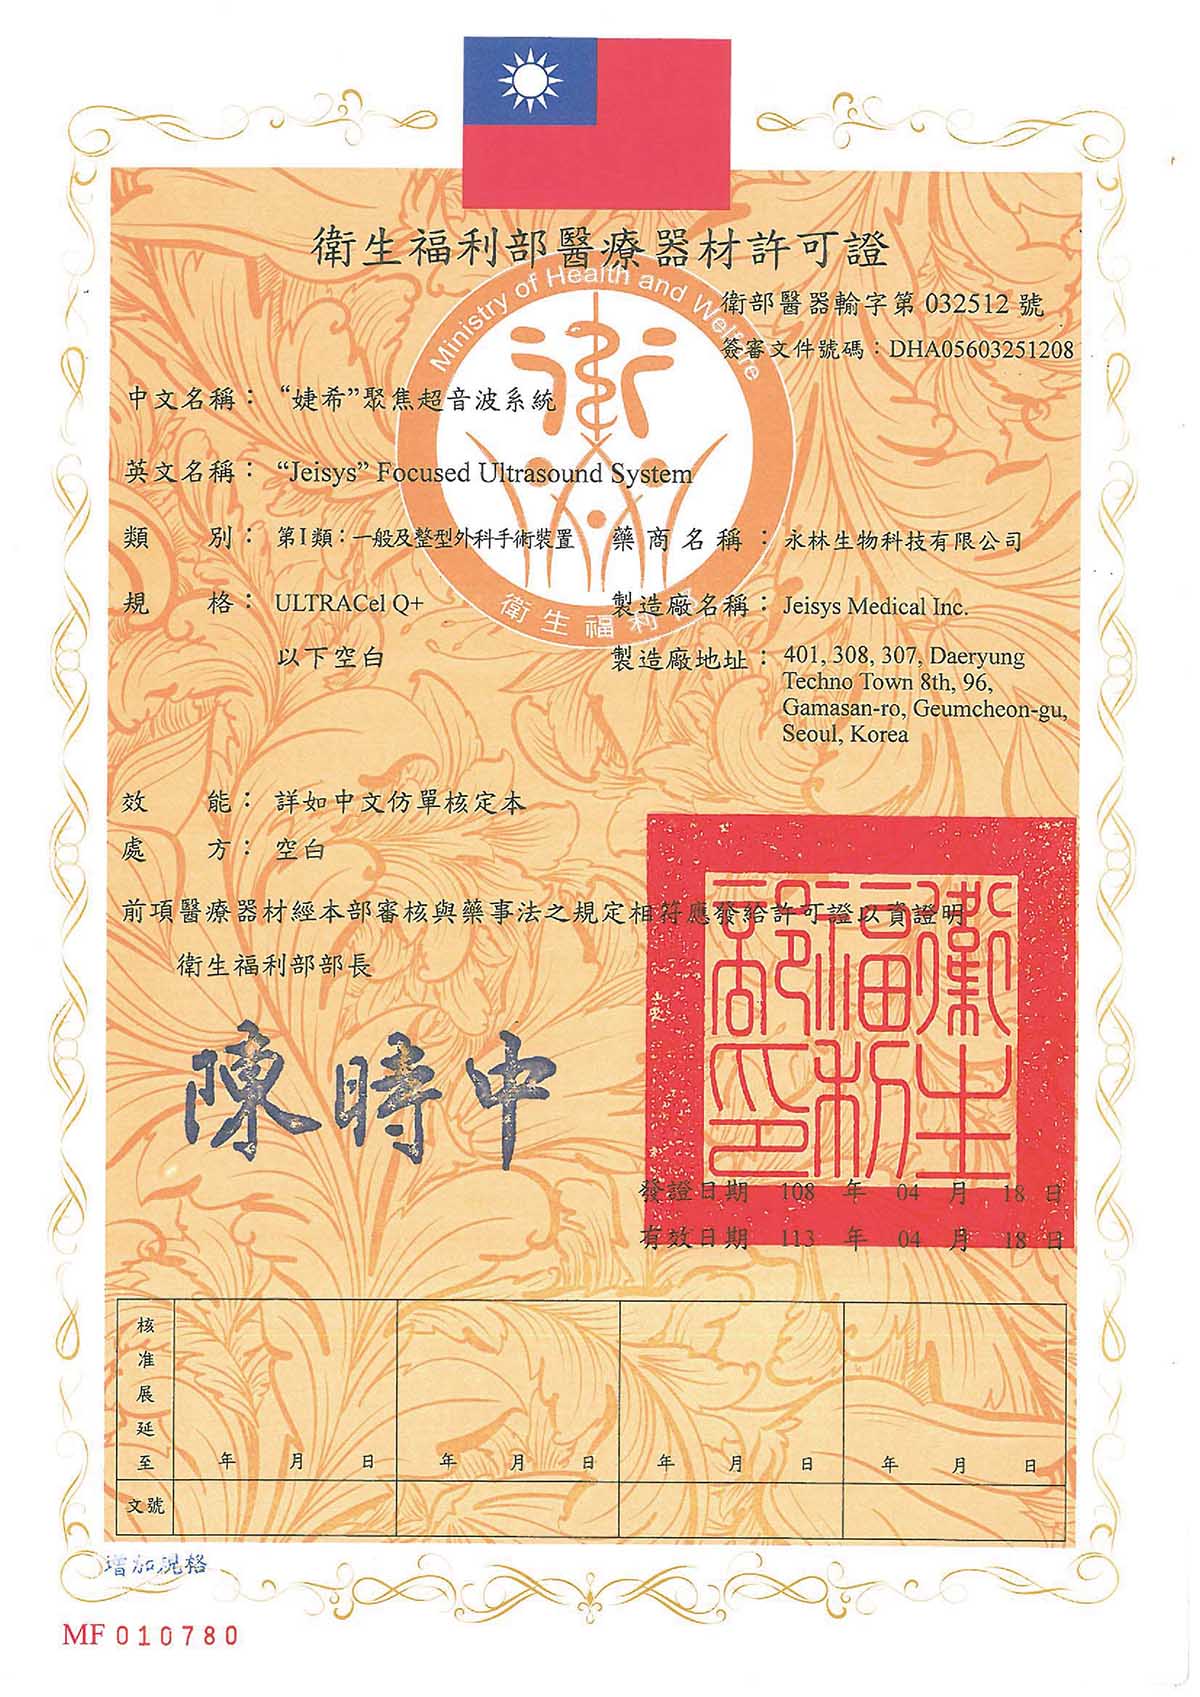 衛生福利部醫療器材許可證
Ministry of Health and Welfare
衛部醫器輸字第 032512 號
簽審文件號碼：DHA05603251208
中文名稱： “婕希”聚焦超音波系統
英文名稱： “Jeisys” Focused Ultrasound System
類別： 第I類：一般及整型外科手術裝置
藥商名稱： 永林生物科技有限公司
規格： ULTRACel Q+
以下空白
製造廠名稱： Jeisys Medical Inc.
衛生福利部
製造廠地址： 401, 308, 307, Daeryung
Techno Town 8th, 96,
Gamasan-ro, Geumcheon-gu,
Seoul, Korea
效能： 詳如中文仿單核定本
處方： 空白
前項醫療器材經本部審核與藥事法之規定相符應發給許可證以資證明
衛生福利部部長
陳時中
衛生福利部印
發證日期 108 年 04 月 18 日
有效日期 113 年 04 月 18 日
核准展延至 年 月 日 年 月 日 年 月 日 年 月 日
文號
增加規格
MF 010780